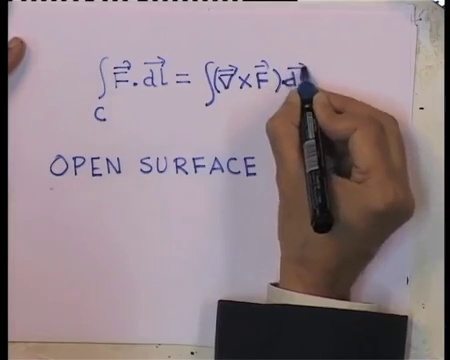 ∫ F⃗ . dl⃗ = ∫(∇⃗ × F⃗) . d
C
OPEN SURFACE